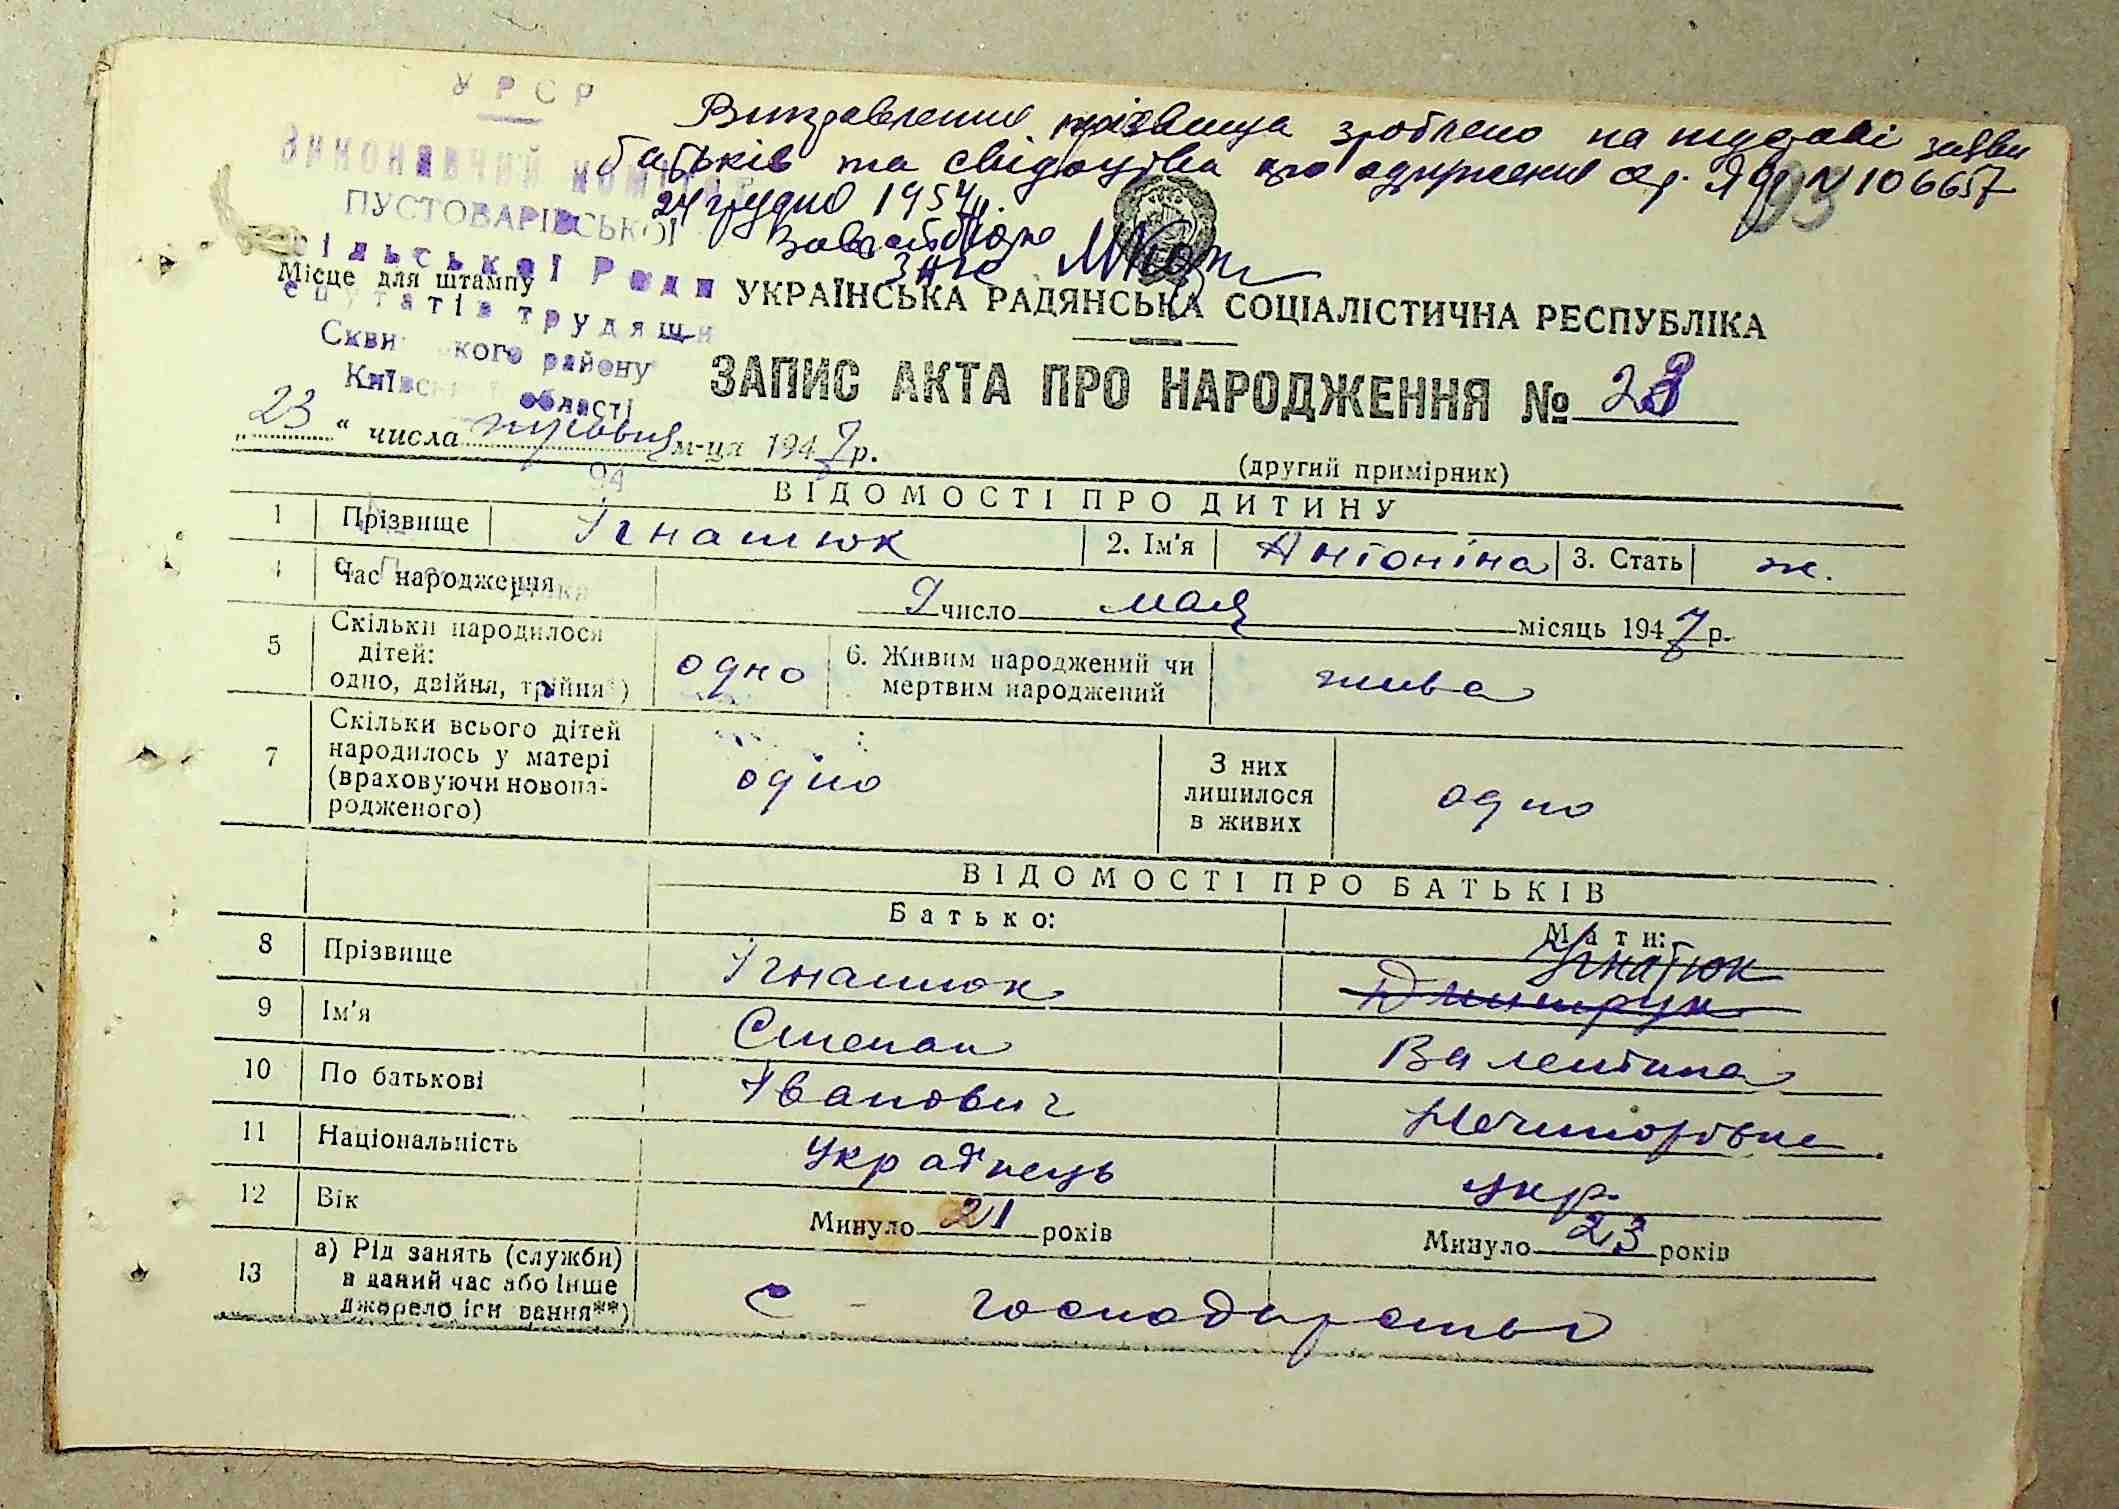 УРСР
Виправлення прізвища зроблено на підставі заяви
Виконавчий комітет
батьків та свідоцтва про одруження сер. № 106657
ПУСТОВАРІВСЬКОЇ
24 грудня 1954 р.
93
сільської Ради
Місце для штампу
депутатів трудящи
УКРАЇНСЬКА РАДЯНСЬКА СОЦІАЛІСТИЧНА РЕСПУБЛІКА
Сквирського району
Київської області
ЗАПИС АКТА ПРО НАРОДЖЕННЯ № 28
„23“ числа травня м-ця 1947 р.
(другий примірник)
ВІДОМОСТІ ПРО ДИТИНУ
1 Прізвище Ігнатюк 2. Ім'я Антоніна 3. Стать ж.
4 Час народження 9 число мая місяць 1947 р.
5 Скільки народилося дітей: одно, двійня, трійня*) одно 6. Живим народжений чи мертвим народжений жива
7 Скільки всього дітей народилось у матері (враховуючи новонародженого) одно З них лишилося в живих одно
ВІДОМОСТІ ПРО БАТЬКІВ
Батько: Мати:
Ігнатюк
8 Прізвище Ігнатюк Дмитрук
9 Ім'я Степан Валентина
10 По батькові Іванович Нечипорівна
11 Національність Українець укр.
12 Вік Минуло 21 років Минуло 23 років
13 а) Рід занять (служби) в даний час або інше джерело існування**) с - господарство